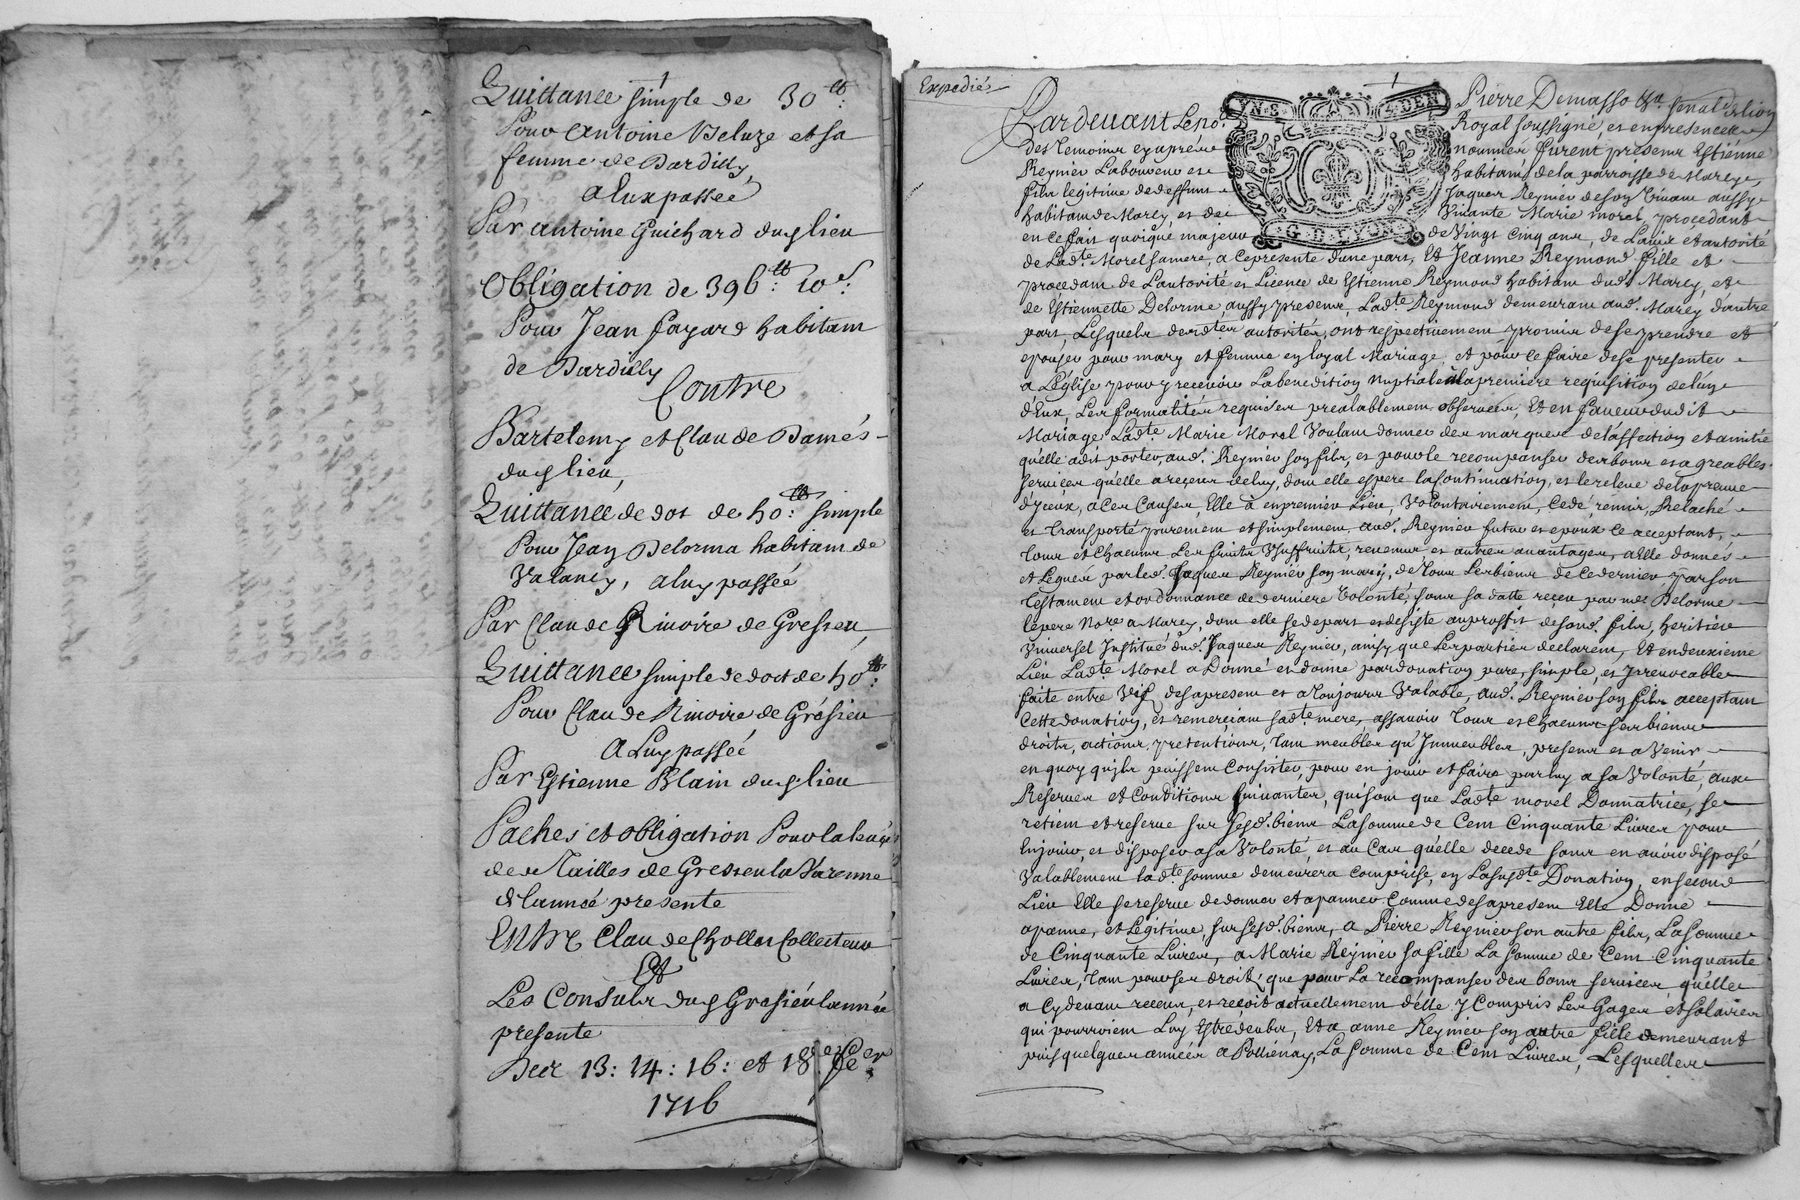 Quittance simple de 30ᵗᵗ:
Pour antoine Beluze et sa
femme de Dardilly,
a Eux passeé
Par antoine Guichard dud lieu
Obligation de 396ᵗᵗ: 10ˢ:
Pour Jean fayard habitant
de Dardilly
Contre
Bartelemy et Claude Damés
dud lieu,
Quittance de dot de 50ᵗᵗ: simple
Pour Jean Delorma habitant de
a luy passeé
Par Claude Rivoire de Gresieu,
Quittance simple de dot de 50ᵗᵗ:
Pour Claude Rivoire de Grésieu
A Luy passeé
Par Estienne Blain dud lieu
Paches et obligation Pour la levée
des Tailles de Gresieu la Varenne
de lanneé presente
Entre Claude Chollet Collecteur
Et
Les Consuls dud Gresiéu lannée
presente
Des 13: 14: 16: et 18ᵉ fer
1716
Expedié
Pardevant Le no.ʳᵉ
Royal soussigné, et en presence
des temoins cy apres nommés furent présens Estiénne
Reynier Laboureur et habitant de la parroisse de Marcy,
fils legitime de deffunt Jaques Reynier de son vivant aussy
habitant de Marcy et de vivante Marie morel, procedant
en ce fait quoique majeur de Vingt cinq ans, de L'avis et autorité
de Lad.ᵗᵉ Morel sa mere, a ce presente d'une part, Et Jeanne Reymond fille et
procedant de L'autorité et Licence de Estienne Reymond habitant dud. Marcy, et
de Estiennette Delorme, aussy presens, Lad.ᵗᵉ Reymond demeurant aud. Marcy d'autre
part, Lesquels desd.ᵗᵉˢ autorités, ont respectivement promis de se prendre et
epouser pour mary et femme en loyal Mariage, et pour ce faire de se presenter
a L'église pour y recevoir La benedition nuptiale a la premiere requisition de l'un
d'Eux, Les formalités requises prealablement observées, Et en faveur dudit
Mariage Lad.ᵗᵉ Marie Morel voulant donner des marques de l'affection et amitié
qu'elle a dit porter, aud. Reynier son fils, et pour le recompanser des bons et agreables
services qu'elle a reçeus de luy, dont elle espere la continuation, et le releve de la preuve
d'yceux, a Ces Causes, Elle a en premier Lieu, volontairement, Cedé, remis, Relaché
et transporté purement et simplement, aud. Reynier futur epoux ce acceptant,
tous et chacuns Les fruits Usuffruits, revenus et autres avantages, a Elle donnés
et Legués par led. Jaques Reynier son mary, de tous Les biens de ce dernier par son
testament et ordonnance de derniere volonté, sous sa datte reçeu par me Delorme
le pere No.ʳᵉ a Marcy, dont elle se depart et desiste au proffit de sond. fils, heritier
Universel Institué dud. Jaques Reynier, ainsy que Les parties declarent, Et en deuxieme
Lieu Lad.ᵗᵉ Morel a Donné et donne par donation pure, simple, et Yrrevocable
faite entre vifs des a present et a toujours Valable, aud. Reynier son fils acceptant
cette donation, et remerçiant sad.ᵗᵉ mere, assavoir tous et chacuns ses biens
droits, actions, pretentions, tant meubles qu'Immeubles, presens et a Venir
en quoy qu'ils puissent Consister, pour en jouir et faire par luy a sa Volonté, aux
Reserves Et Conditions suivantes, qui sont que Lad.ᵗᵉ morel Donnatrice, se
retient et reserve sur sesd. biens La somme de Cent Cinquante Livres pour
En jouir, et disposer a sa Volonté, et au Cas qu'elle decede sans en avoir disposé
Valablement lad.ᵗᵉ somme demeurera comprise, en La susd.ᵗᵉ Donation, en second
Lieu Elle se reserve de donner et apanner Comme des a present Elle Donne
apanne, et Légitime, sur sesd. biens, a Pierre Reynier son autre fils, La somme
de Cinquante Livres, a Marie Reynier sa fille La somme de Cent Cinquante
Livres, tant pour ses droits que pour La recompanser des bons services qu'elle
a Cy devant reçeus, et reçoit actuellement d'elle y compris Les gages et salaires
qui pourroient Luy Estre deubs, Et a anne Reynier son autre fille demeurant
puis quelques années a Pollienay, La somme de Cent Livres, Lesquelles